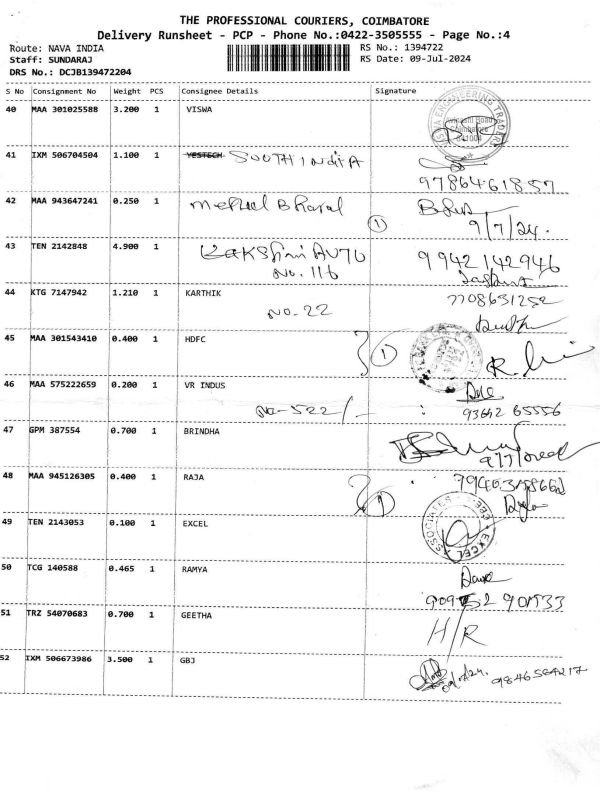 THE PROFESSIONAL COURIERS, COIMBATORE
Delivery Runsheet - PCP - Phone No.:0422-3505555 - Page No.:4
Route: NAVA INDIA
RS No.: 1394722
Staff: SUNDARAJ
RS Date: 09-Jul-2024
DRS No.: DCJB139472204
S No Consignment No Weight PCS Consignee Details Signature
40 MAA 301025588 3.200 1 VISWA
41 IXM 506704504 1.100 1 YESTECH SOUTH INDIA
9786461857
42 MAA 943647241 0.250 1 Mehul Bharal
1 9/7/24.
43 TEN 2142848 4.900 1 Lakshmi AUTO 9942142946
NO. 116
44 KTG 7147942 1.210 1 KARTHIK 7708631252
NO. 22
45 MAA 301543410 0.400 1 HDFC 1
46 MAA 575222659 0.200 1 VR INDUS
NO-522/- : 93642 65556
47 GPM 387554 0.700 1 BRINDHA
48 MAA 945126305 0.400 1 RAJA 1
49 TEN 2143053 0.100 1 EXCEL ASSOCIATES EXCEL
50 TCG 140588 0.465 1 RAMYA
51 TRZ 54070683 0.700 1 GEETHA H/R
52 IXM 506673986 3.500 1 GBJ 9846564217